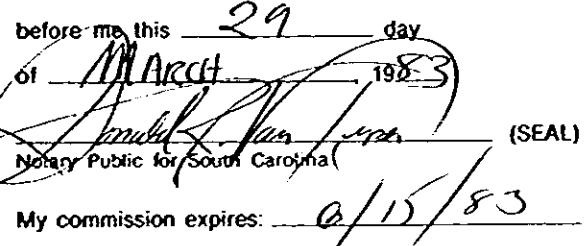 before me this 29 day
of MARCH, 1983
(SEAL)
Notary Public for South Carolina
My commission expires: /15/83